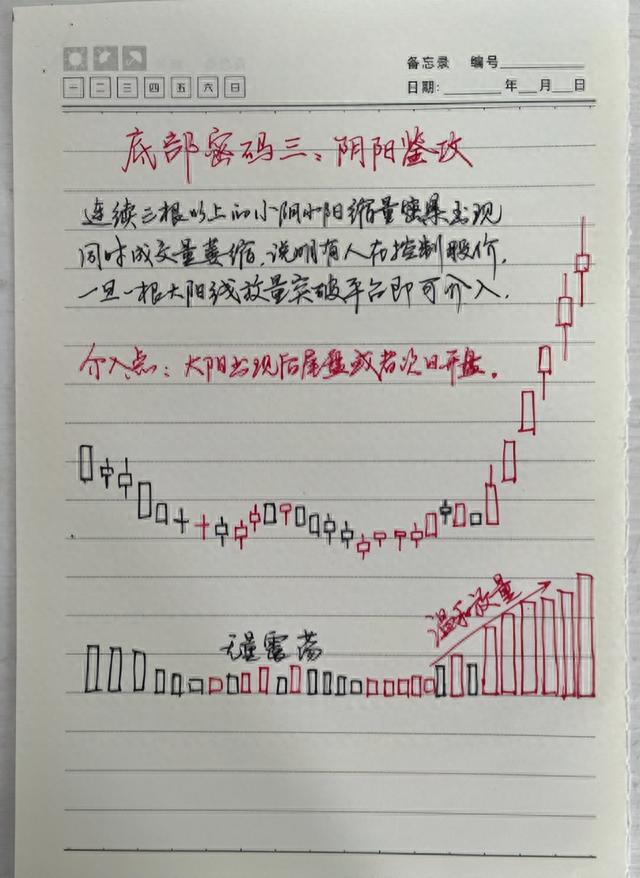 备忘录 编号
一 二 三 四 五 六 日
日期: 年 月 日
底部密码三：阴阳鉴政
连续三根以上的小阴小阳缩量密集出现
同时成交量萎缩,说明有人在控制股价,
一旦一根大阳线放量突破平台即可介入.
介入点：大阳出现后尾盘或者次日开盘。
无量震荡
温和放量